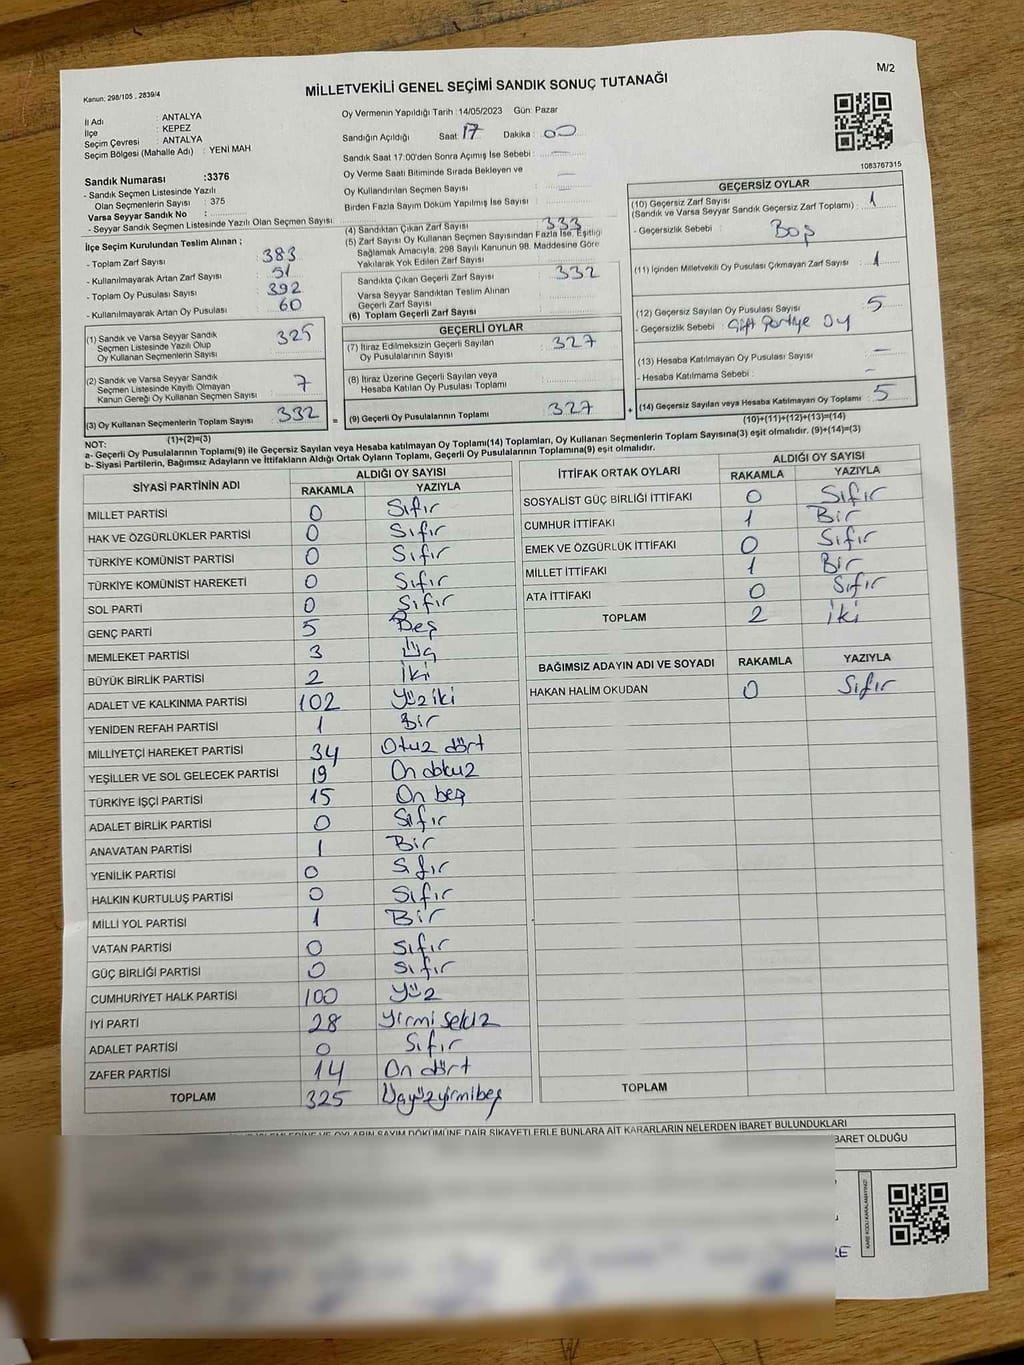 Kanun: 298/105 , 2839/4
MİLLETVEKİLİ GENEL SEÇİMİ SANDIK SONUÇ TUTANAĞI
M/2
İl Adı : ANTALYA
İlçe : KEPEZ
Seçim Çevresi : ANTALYA
Seçim Bölgesi (Mahalle Adı) : YENİ MAH
Sandık Numarası :3376
- Sandık Seçmen Listesinde Yazılı
Olan Seçmenlerin Sayısı : 375
Varsa Seyyar Sandık No :
- Seyyar Sandık Seçmen Listesinde Yazılı Olan Seçmen Sayısı
Oy Vermenin Yapıldığı Tarih :14/05/2023 Gün: Pazar
Sandığın Açıldığı Saat: 17 Dakika : 00
Sandık Saat 17:00'den Sonra Açımış İse Sebebi : —
Oy Verme Saati Bitiminde Sırada Bekleyen ve
Oy Kullandırılan Seçmen Sayısı —
Birden Fazla Sayım Döküm Yapılmış İse Sayısı :
1083767315
İlçe Seçim Kurulundan Teslim Alınan ;
- Toplam Zarf Sayısı : 383
- Kullanılmayarak Artan Zarf Sayısı : 51
- Toplam Oy Pusulası Sayısı : 392
- Kullanılmayarak Artan Oy Pusulası : 60
(1) Sandık ve Varsa Seyyar Sandık
Seçmen Listesinde Yazılı Olup
Oy Kullanan Seçmenlerin Sayısı 325
(2) Sandık ve Varsa Seyyar Sandık
Seçmen Listesinde Kayıtlı Olmayan
Kanun Gereği Oy Kullanan Seçmen Sayısı 7
(3) Oy Kullanan Seçmenlerin Toplam Sayısı 332 =
(1)+(2)=(3)
(4) Sandıktan Çıkan Zarf Sayısı : 333
(5) Zarf Sayısı Oy Kullanan Seçmen Sayısından Fazla İse, Eşitliği
Sağlamak Amacıyla, 298 Sayılı Kanunun 98. Maddesine Göre
Yakılarak Yok Edilen Zarf Sayısı :
Sandıkta Çıkan Geçerli Zarf Sayısı : 332
Varsa Seyyar Sandıktan Teslim Alınan
Geçerli Zarf Sayısı
(6) Toplam Geçerli Zarf Sayısı :
GEÇERLİ OYLAR
(7) İtiraz Edilmeksizin Geçerli Sayılan
Oy Pusulalarının Sayısı : 327
(8) İtiraz Üzerine Geçerli Sayılan veya
Hesaba Katılan Oy Pusulası Toplamı :
(9) Geçerli Oy Pusulalarının Toplamı 327 +
GEÇERSİZ OYLAR
(10) Geçersiz Zarf Sayısı : 1
(Sandık ve Varsa Seyyar Sandık Geçersiz Zarf Toplamı)
- Geçersizlik Sebebi : Boş
(11) İçinden Milletvekili Oy Pusulası Çıkmayan Zarf Sayısı : 1
(12) Geçersiz Sayılan Oy Pusulası Sayısı : 5
- Geçersizlik Sebebi : Çift Partiye Oy
(13) Hesaba Katılmayan Oy Pusulası Sayısı : —
- Hesaba Katılmama Sebebi : —
(14) Geçersiz Sayılan veya Hesaba Katılmayan Oy Toplamı : 5
(10)+(11)+(12)+(13)=(14)
NOT:
a- Geçerli Oy Pusulalarının Toplamı(9) ile Geçersiz Sayılan veya Hesaba katılmayan Oy Toplamı(14) Toplamları, Oy Kullanan Seçmenlerin Toplam Sayısına(3) eşit olmalıdır. (9)+(14)=(3)
b- Siyasi Partilerin, Bağımsız Adayların ve İttifakların Aldığı Ortak Oyların Toplamı, Geçerli Oy Pusulalarının Toplamına(9) eşit olmalıdır.
SİYASİ PARTİNİN ADI ALDIĞI OY SAYISI
RAKAMLA YAZIYLA
MİLLET PARTİSİ 0 Sıfır
HAK VE ÖZGÜRLÜKLER PARTİSİ 0 Sıfır
TÜRKİYE KOMÜNİST PARTİSİ 0 Sıfır
TÜRKİYE KOMÜNİST HAREKETİ 0 Sıfır
SOL PARTİ 0 Sıfır
GENÇ PARTİ 5 Beş
MEMLEKET PARTİSİ 3 Üç
BÜYÜK BİRLİK PARTİSİ 2 İki
ADALET VE KALKINMA PARTİSİ 102 Yüz iki
YENİDEN REFAH PARTİSİ 1 Bir
MİLLİYETÇİ HAREKET PARTİSİ 34 Otuz dört
YEŞİLLER VE SOL GELECEK PARTİSİ 19 On dokuz
TÜRKİYE İŞÇİ PARTİSİ 15 On beş
ADALET BİRLİK PARTİSİ 0 Sıfır
ANAVATAN PARTİSİ 1 Bir
YENİLİK PARTİSİ 0 Sıfır
HALKIN KURTULUŞ PARTİSİ 0 Sıfır
MİLLİ YOL PARTİSİ 1 Bir
VATAN PARTİSİ 0 Sıfır
GÜÇ BİRLİĞİ PARTİSİ 0 Sıfır
CUMHURİYET HALK PARTİSİ 100 Yüz
İYİ PARTİ 28 Yirmi sekiz
ADALET PARTİSİ 0 Sıfır
ZAFER PARTİSİ 14 On dört
TOPLAM 325 Üçyüzyirmibeş
İTTİFAK ORTAK OYLARI ALDIĞI OY SAYISI
RAKAMLA YAZIYLA
SOSYALİST GÜÇ BİRLİĞİ İTTİFAKI 0 Sıfır
CUMHUR İTTİFAKI 1 Bir
EMEK VE ÖZGÜRLÜK İTTİFAKI 0 Sıfır
MİLLET İTTİFAKI 1 Bir
ATA İTTİFAKI 0 Sıfır
TOPLAM 2 İki
BAĞIMSIZ ADAYIN ADI VE SOYADI RAKAMLA YAZIYLA
HAKAN HALİM OKUDAN 0 Sıfır
TOPLAM
İŞLEMLERİNE VE OYLARIN SAYIM DÖKÜMÜNE DAİR ŞİKAYETLERLE BUNLARA AİT KARARLARIN NELERDEN İBARET BULUNDUKLARI
İBARET OLDUĞU
RE
KARE KODU KARALAMAYINIZ!